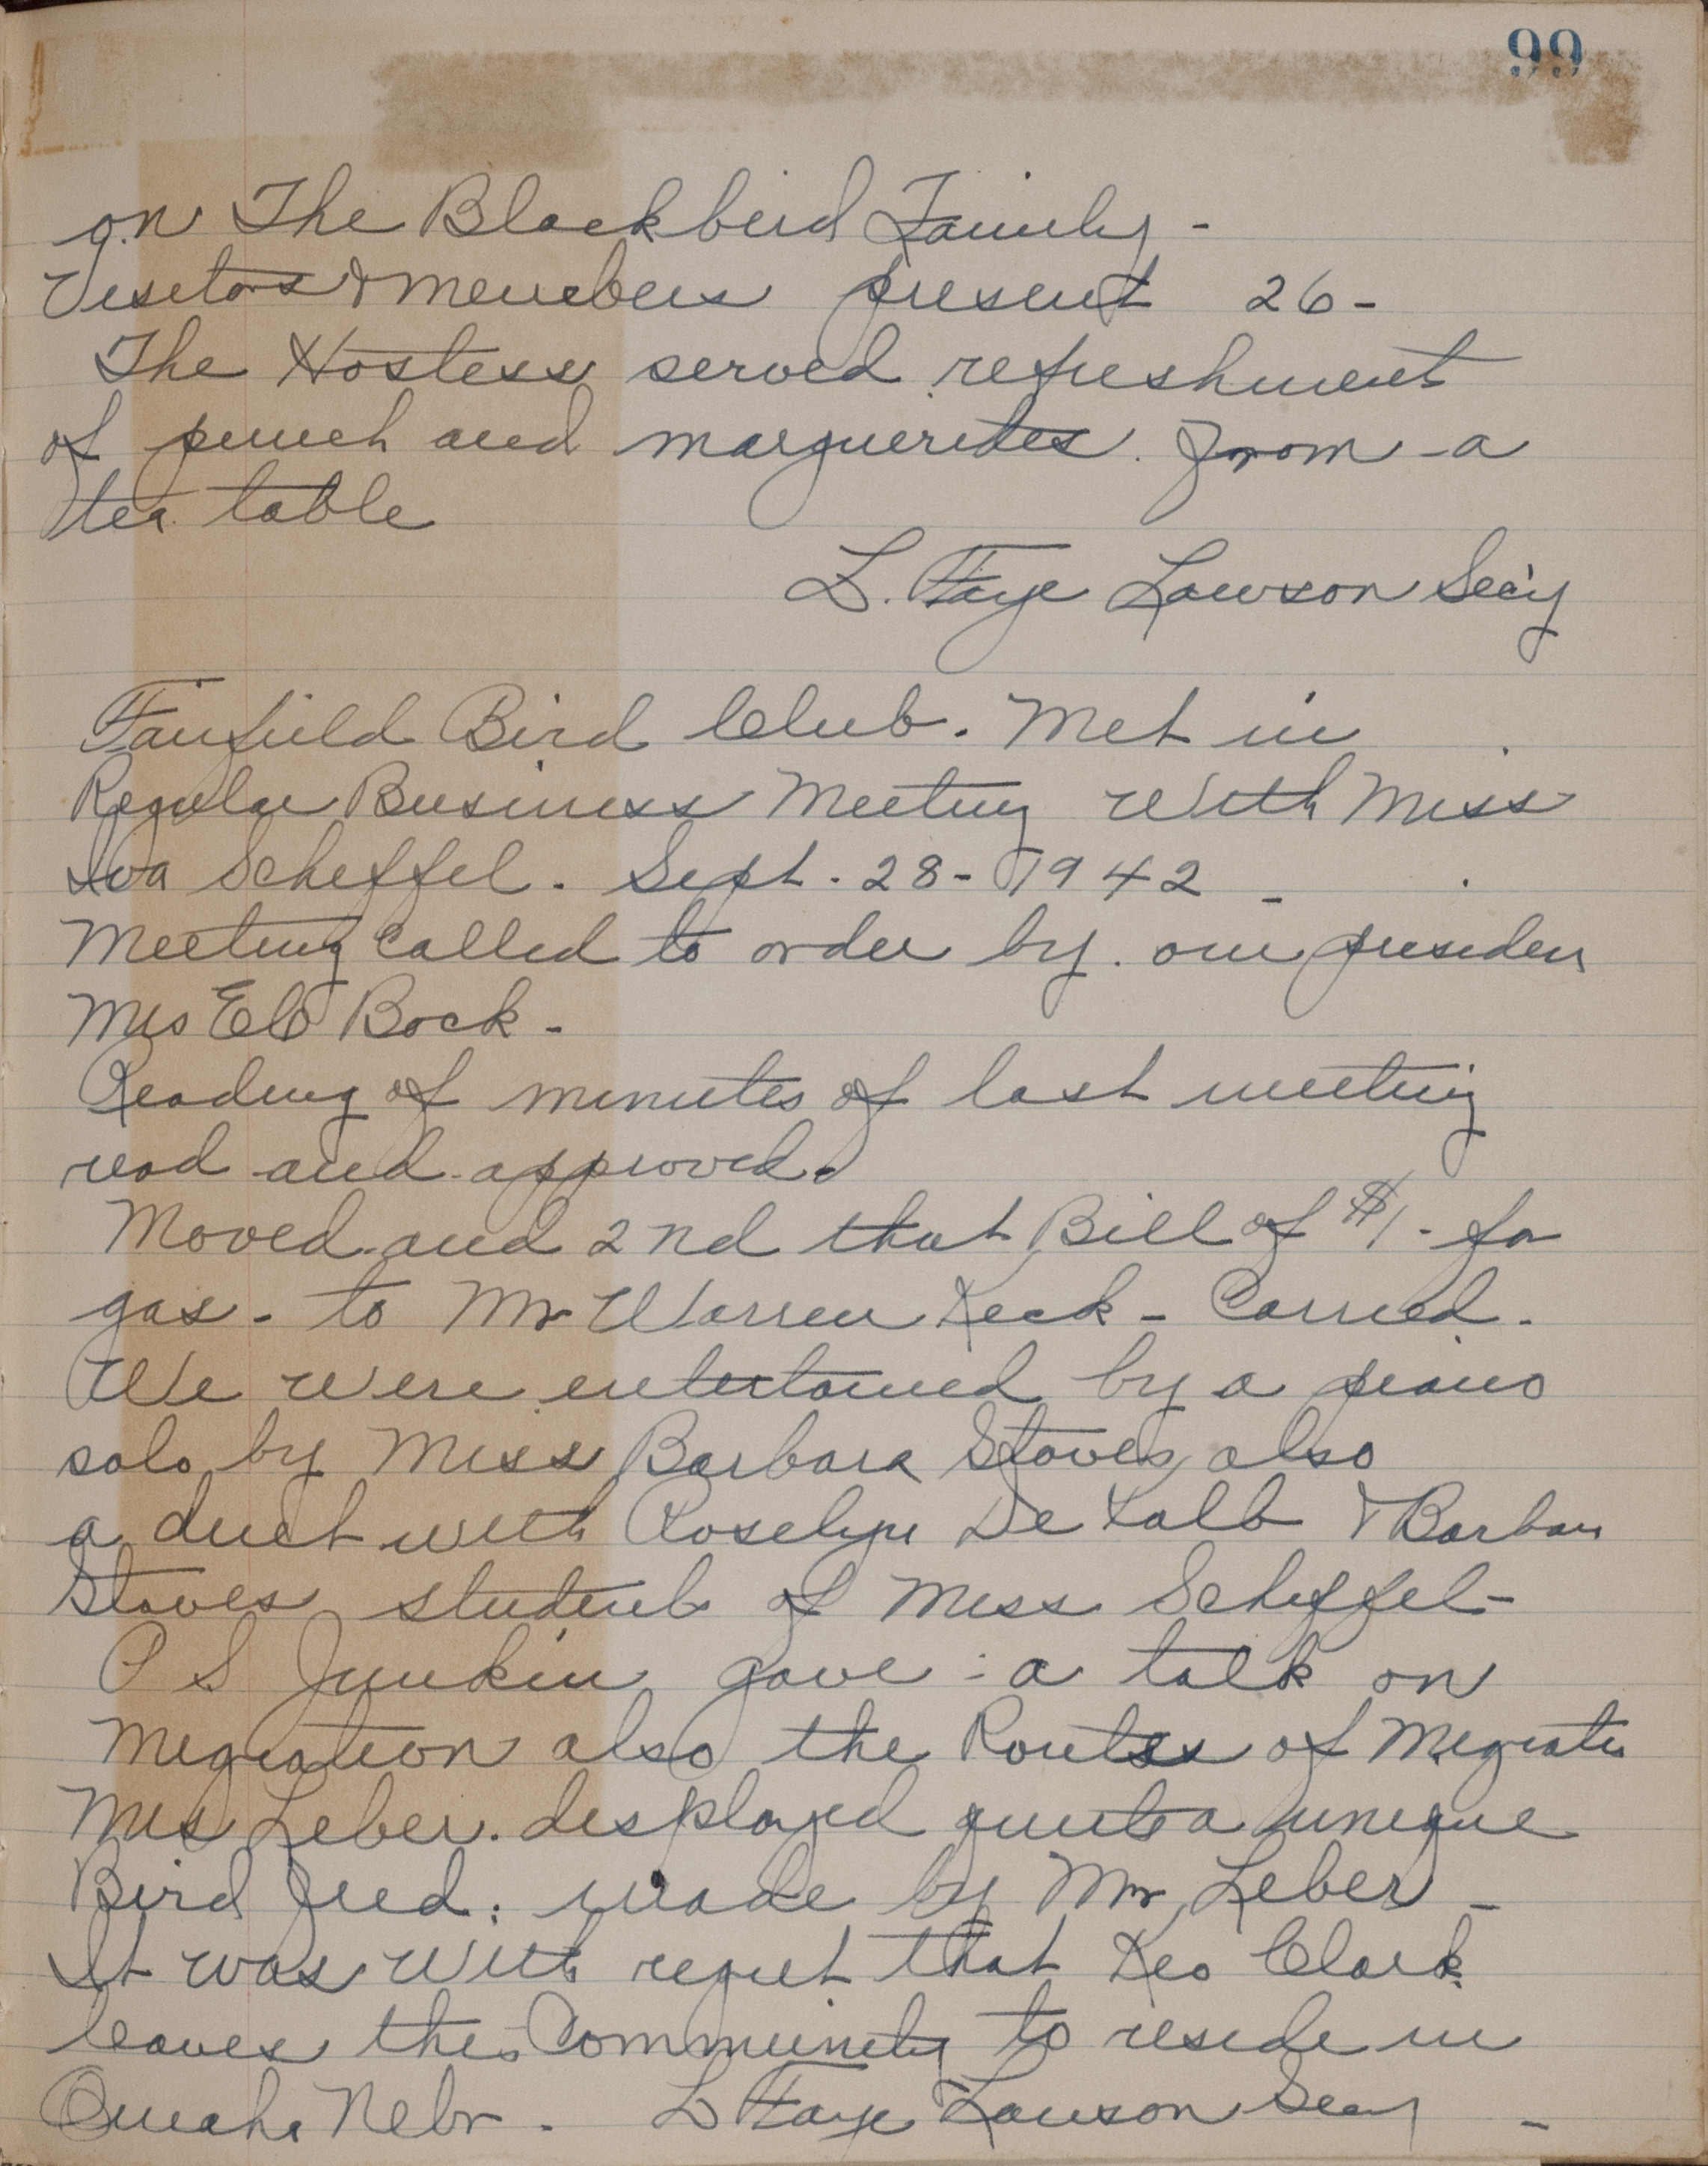 99
on The Blackbird Family -
Visitors & members present 26 -
The Hostess served refreshment
of punch and marguerites. from a
tea table
L. Faye Lawson Sec'y
Fairfield Bird Club. Met in
Regular Business Meeting With Miss
Iva Scheffel. Sept. 28 - 1942 -
Meeting Called to order by our presiden
Mrs Bock -
Reading of minutes of last meeting
read and approved.
Moved and 2nd that Bill of $1 - for
gas - to Mr Warren Keck - Carried -
We were entertained by a piano
solo by Miss Barbara Stoves, also
a duet with Roselyn De Kalb & Barbara
Stoves students of Miss Scheffel -
P S Junkin gave a talk on
Migration also the Routes of Migratio
Mrs Leber. displayed quite a unique
Bird made by Mr Leber -
It was with regret that Keo Clark
leaves this Community to reside in
Omaha Nebr - L Faye Lawson Secy -